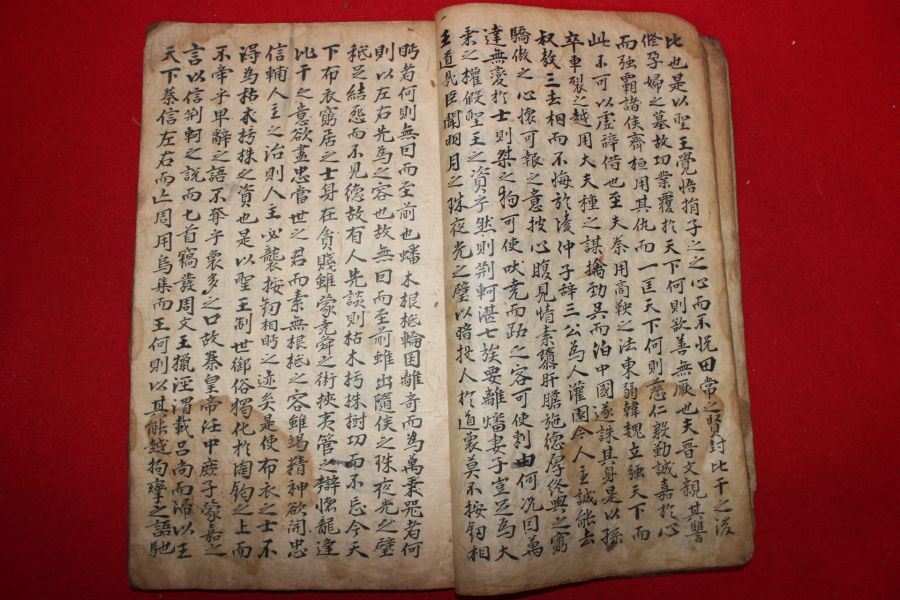 比也是以聖王覺悟捐子之之心而不悅田常之賢封比干之後
修孕婦之墓故功業覆於天下何則欲善無厭也夫晉文親其讐
而強霸諸侯齊桓用其仇而一匡天下何則慈仁殷勤誠嘉於心
此不可以虛辞借也至夫秦用商鞅之法東弱韓魏立強天下而
卒車裂之越用大夫種之謀擒勁吳而泊中國遂誅其身是以孫
叔敖三去相而不悔於陵仲子辞三公為人灌園今人主誠能去
驕傲之心懷可報之意披心腹見情素墮肝膽施德厚終與之窮
達無愛於士則桀之狗可使吠堯而跖之客可使刺由何况因萬
乘之權假聖王之資乎然則荊軻湛七族要離燔妻子豈足為大
王道哉臣聞明月之珠夜光之璧以暗投人於道衆莫不按釰相
眄者何則無因而至前也蟠木根柢輪囷離奇而為萬乘器者何
則以左右先為之容也故無因而至前雖出隨侯之珠夜光之璧
秪足結怨而不見德故有人先談則枯木朽株樹功而不忘今天
下布衣窮居之士身在貧賤雖蒙堯舜之術挾夷管之辯懷龍逢
比干之意欲盡忠當世之君而素無根柢之容雖竭精神欲開忠
信輔人主之治則人主必襲按釰相眄之迹矣是使布衣之士不
得為枯木朽株之資也是以聖王制世御俗獨化於陶鈞之上而
不牽乎卑辭之語不奪乎衆多之口故秦皇帝任中庶子蒙嘉之
言以信荊軻之說而匕首竊發周文王獵涇渭載呂尚而歸以王
天下秦信左右而亡周用烏集而王何則以其能越拘攣之語馳